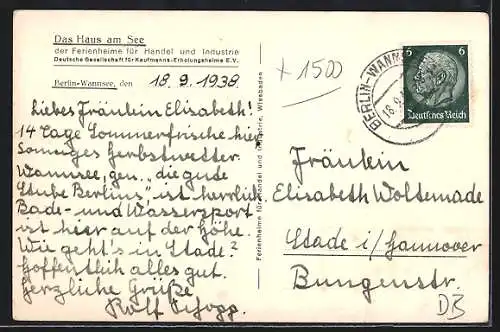 Das Haus am See
der Ferienheime für Handel und Industrie
Deutsche Gesellschaft für Kaufmanns-Erholungsheime E.V.
Berlin-Wannsee, den 18.9.1938
Liebes Fräulein Elisabeth!
14 Tage Sommerfrische hier
Sonniges Herbstwetter.
Wannsee, gen. „die gute
Stube Berlins" ist herrlich.
Bade- und Wassersport
ist hier auf der Höhe.
Wie geht's in Stade?
Hoffentlich alles gut.
Herzliche Grüße
Rolf
Ferienheime für Handel und Industrie, Wiesbaden
+ 1500
BERLIN-WANN
18.9.
6 6
Deutsches Reich
Fräulein
Elisabeth Woltemade
Stade i/Hannover
Bungenstr.